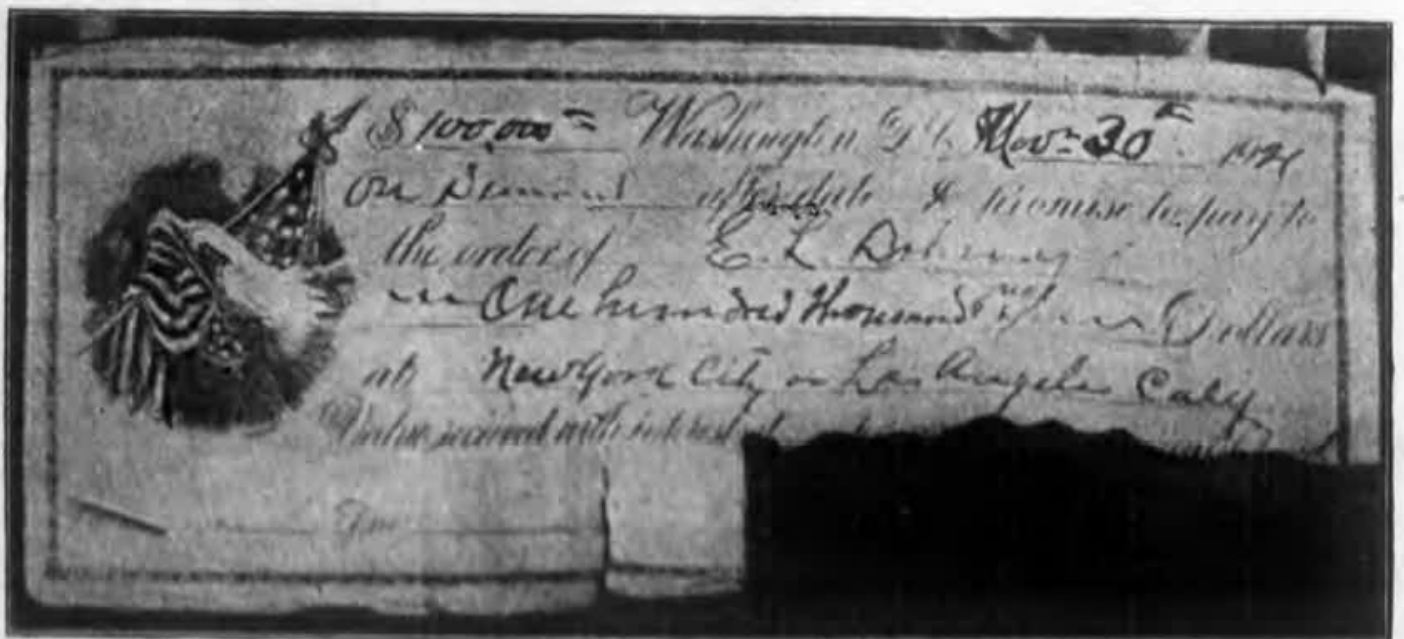 $100,000 Washington D.C. Nov. 30th 1921
On Demand after date I promise to pay to
the order of E. L. Doheny
One hundred thousand Dollars
at New York City or Los Angeles Calif
Value received with interest at
Due